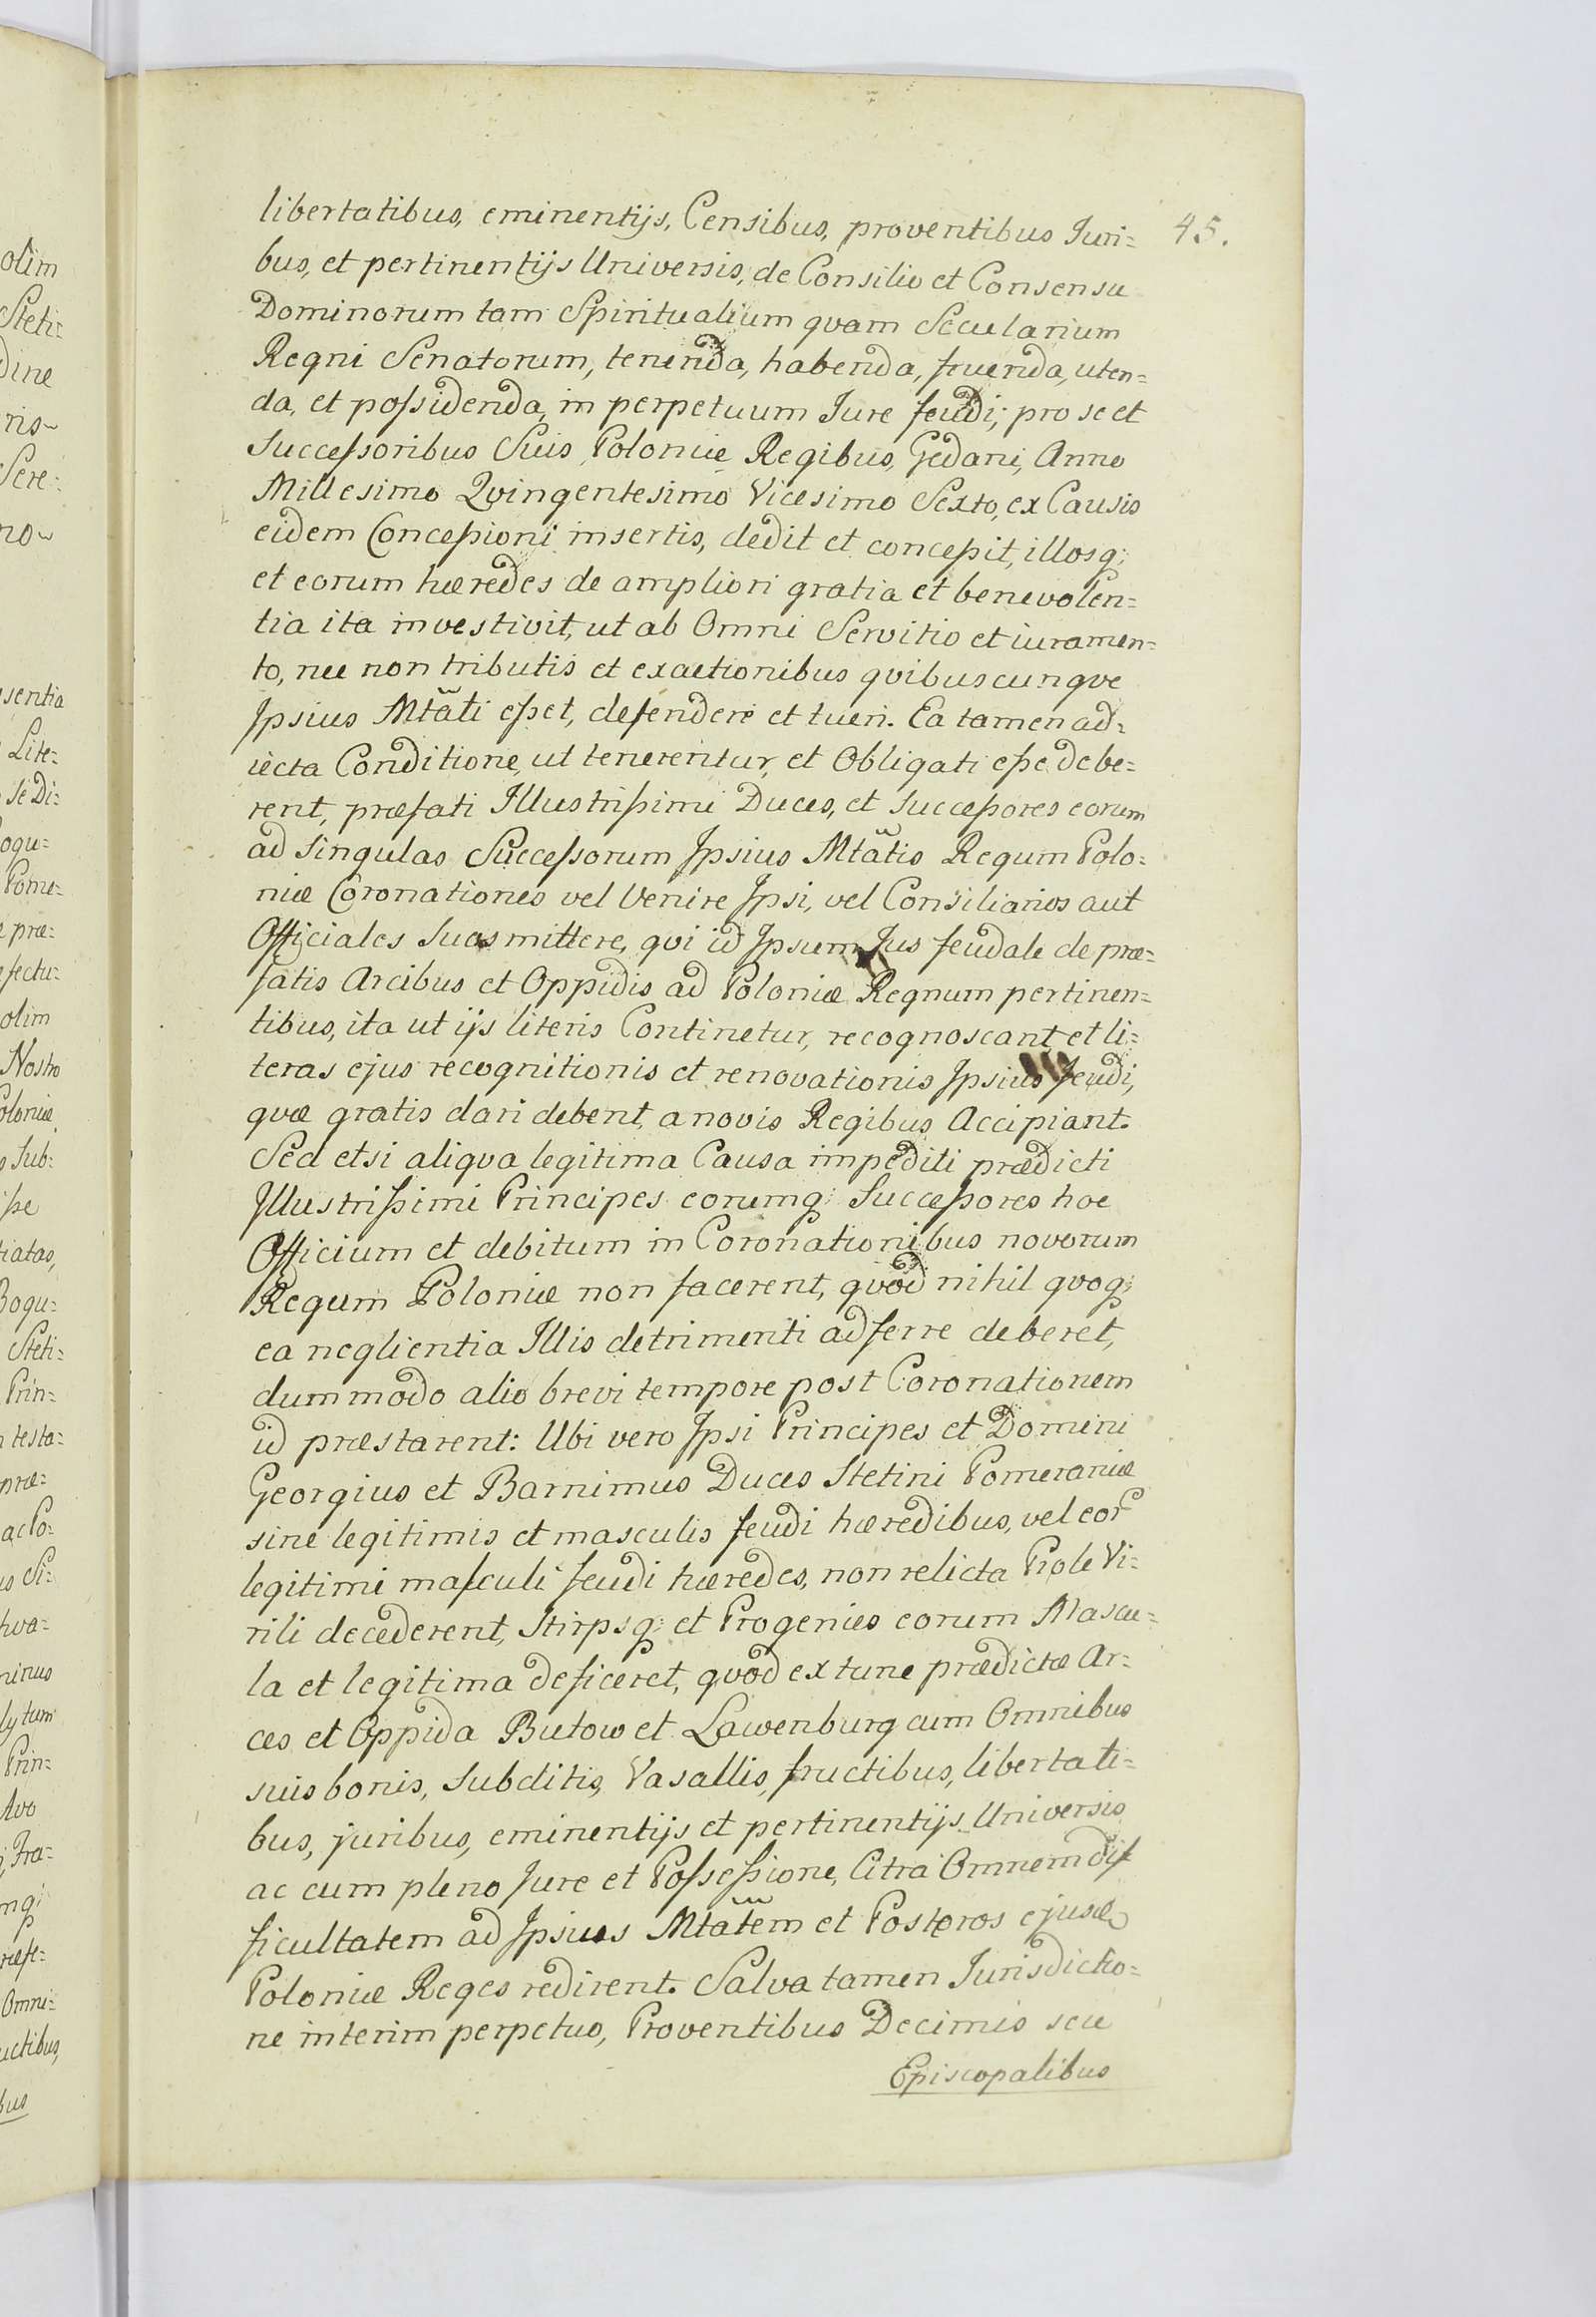 45.
libertatibus, eminentijs, Censibus, proventibus Juri=
bus, et pertinentijs Universis, de Consilio et Consensu
Dominorum tam Spiritualium qvam Secularium
Regni Senatorum, tenenda, habenda, fruenda, uten=
da, et possidenda, in perpetuum Jure feudi; pro se et
Successoribus Suis Poloniæ Regibus, Gedani, Anno
Millesimo Qvingentesimo Vicesimo Sexto, ex Causis
eidem Concessioni insertis, dedit et concessit, illosq;
et eorum hæredes de ampliori gratia et benevolen=
tia ita investivit, ut ab Omni Servitio et iuramen=
to, nec non tributis et exactionibus qvibuscunqve
Ipsius Mtãti esset, defendere et tueri. Ea tamen ad=
iecta Conditione, ut tenerentur, et Obligati esse debe=
rent, præfati Illustrissimi Duces, et Successores eorum
ad singulas Successorum Ipsius Mtãtis Regum Polo=
niæ Coronationes vel Venire Ipsi, vel Consiliarios aut
Officiales Suos mittere, qvi id Ipsum Jus feudale de præ=
fatis Arcibus et Oppidis ad Poloniæ Regnum pertinen=
tibus, ita ut ijs literis Continetur, recognoscant, et li=
teras ejus recognitionis et renovationis Ipsius feudi,
qvæ gratis dari debent, a novis Regibus Accipiant.
Sed etsi aliqva legitima Causa impediti prædicti
Illustrissimi Principes eorumq; Successores hoc
Officium et debitum in Coronationibus novorum
Regum Poloniæ non facerent, qvod nihil qvoq;
ea neglientia Illis detrimenti adferre deberet,
dummodo alio brevi tempore post Coronationem
id præstarent: Ubi vero Ipsi Principes et Domini
Georgius et Barnimus Duces Stetini Pomeraniæ
sine legitimis et masculis feudi hæredibus, vel eor
legitimi masculi feudi hæredes, non relicta Prole Vi=
rili decederent, Stirpsq; et Progenies eorum Mascu=
la et legitima deficeret, qvod ex tunc prædictæ Ar=
ces et Oppida Butow et Lawenburg cum Omnibus
suis bonis, Subditis, Vasallis, fructibus, libertati=
bus, juribus, eminentijs et pertinentijs Universis
ac cum pleno Jure et Possessione, Citra Omnem dif
ficultatem ad Ipsius Mtãtem et Posteros ejus
Poloniæ Reges redirent. Salva tamen Jurisdictio=
ne interim perpetuo, Proventibus Decimis seu
Episcopalibus